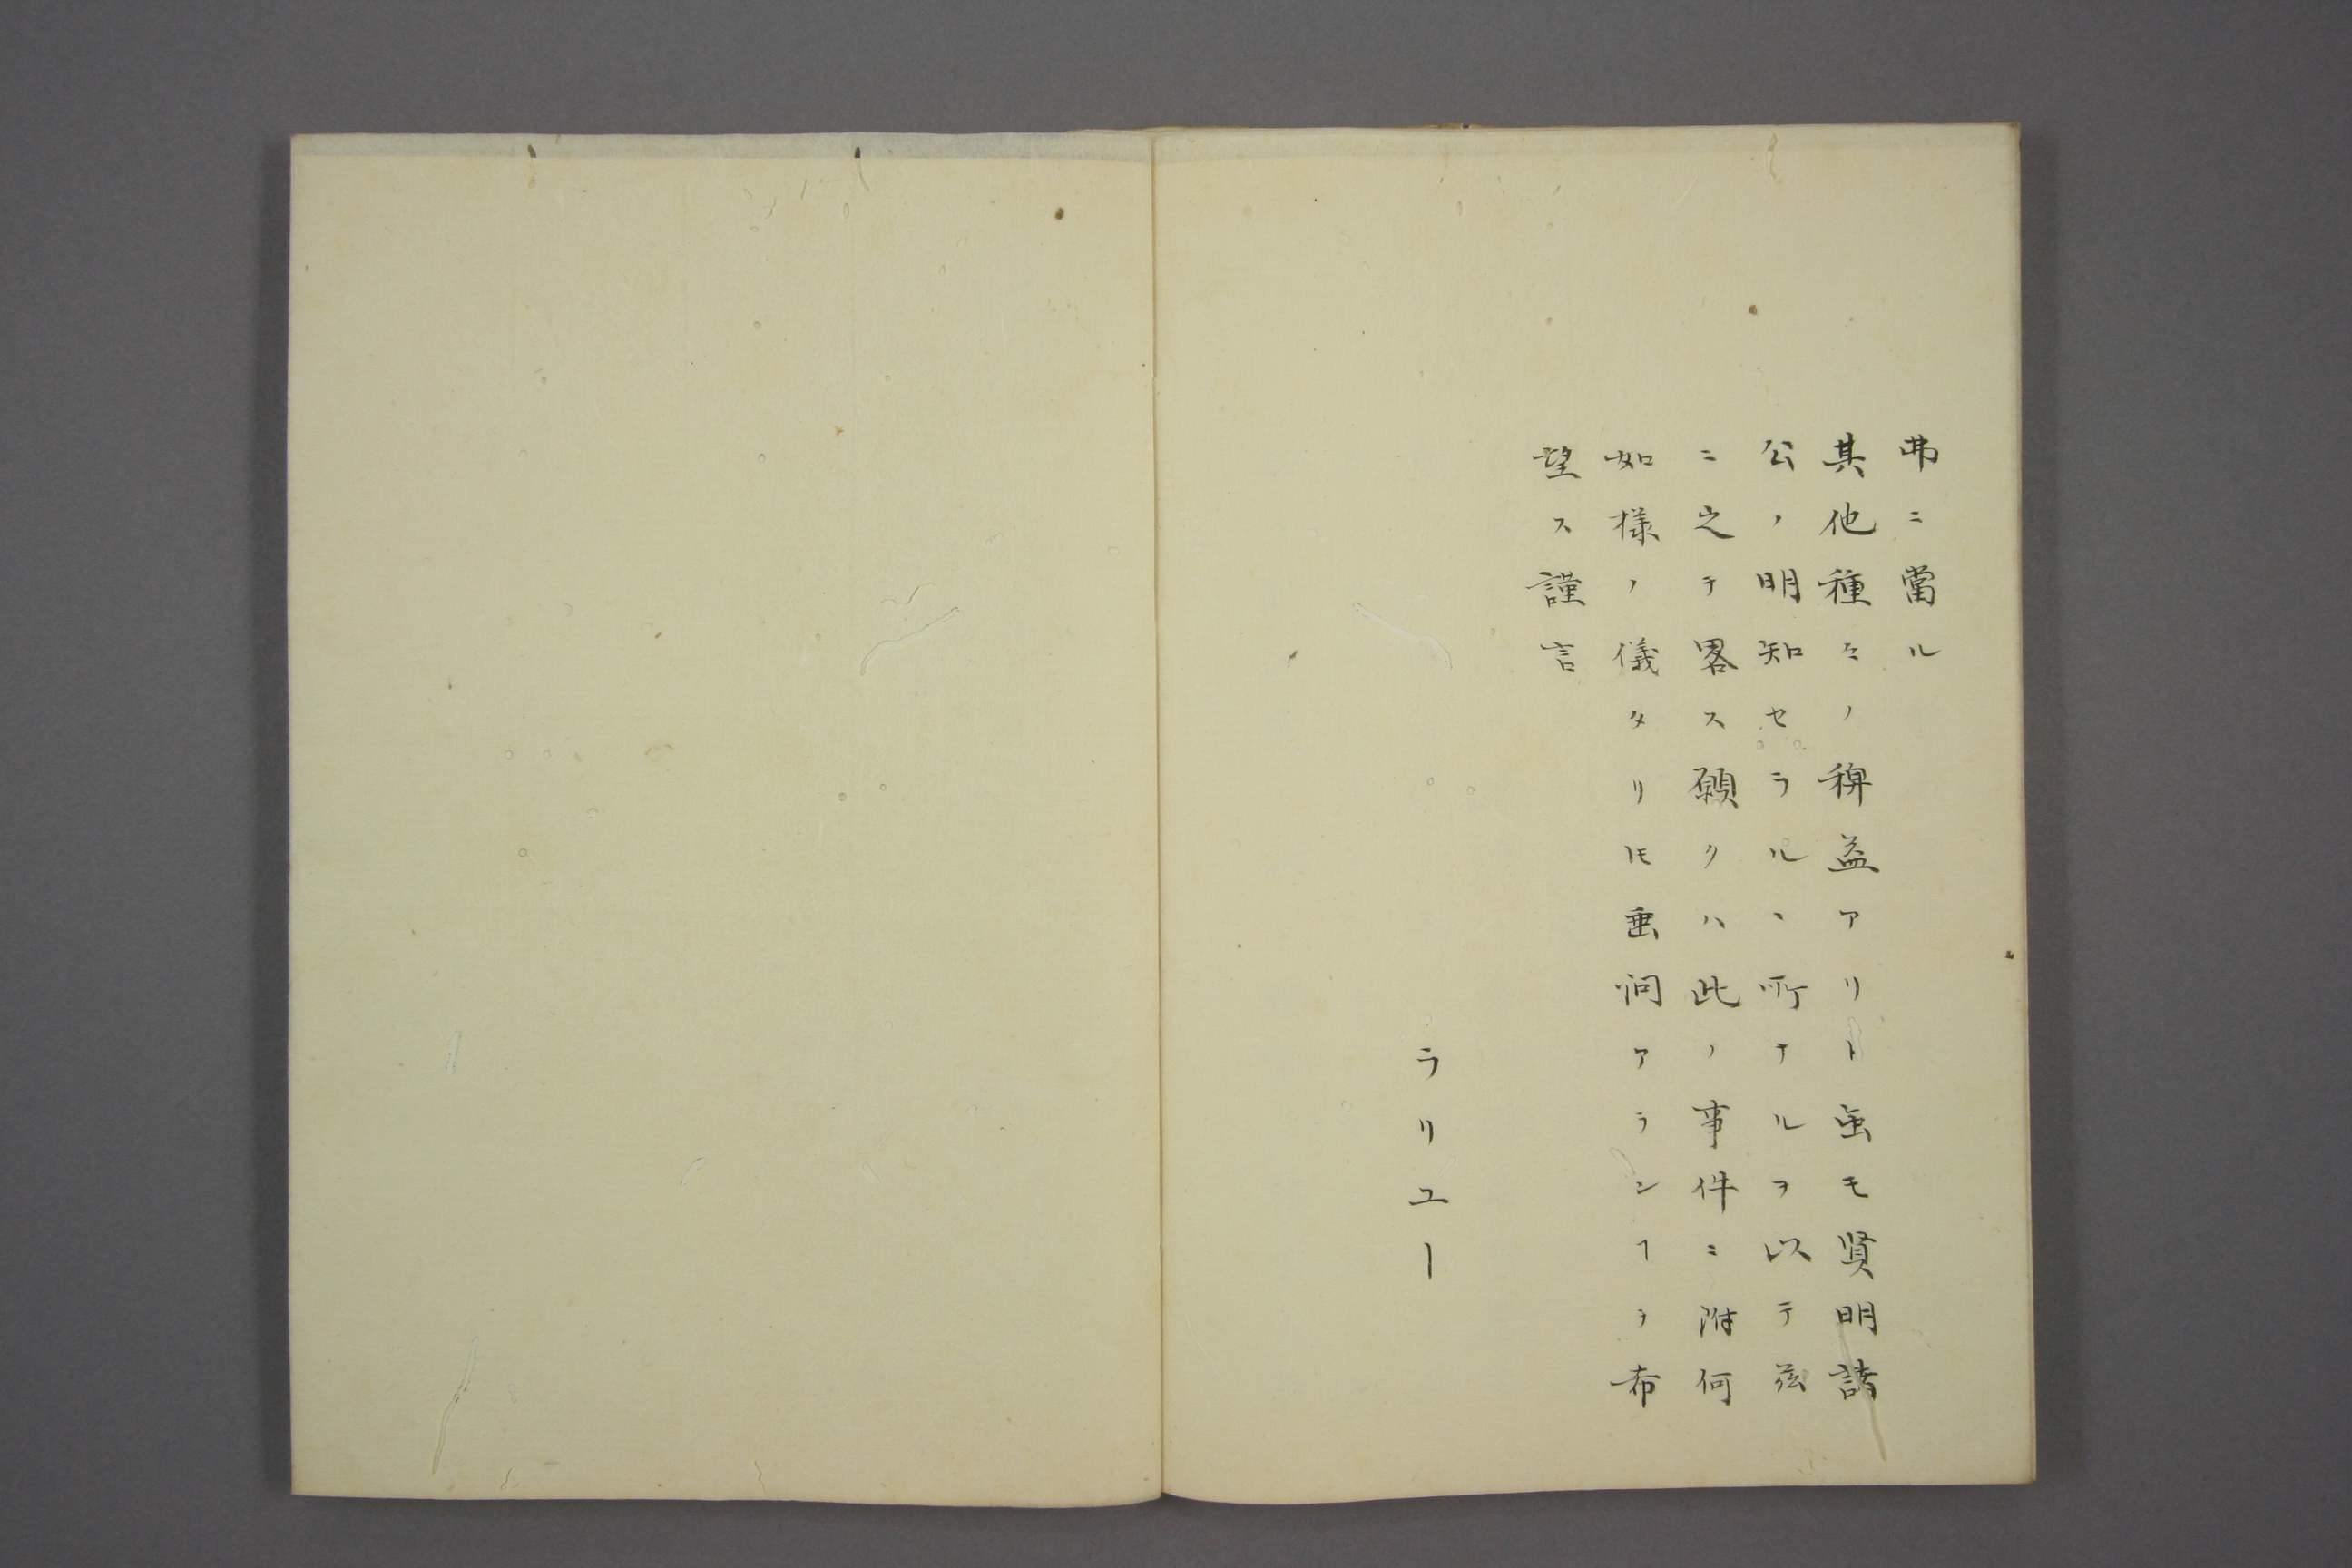 弗ニ當ル
其他種々ノ稗益アリト𧈧モ賢明諸
公ノ明知セラルヽ所ナルヲ以テ茲
ニ之ヲ畧ス願クハ此ノ事件ニ附何
如様ノ儀タリ𪜈垂問アランヿヲ希
望ス謹言
ラリユー